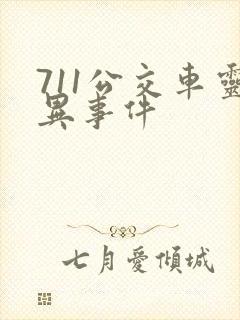 711公交車靈
異事件
七月愛傾城